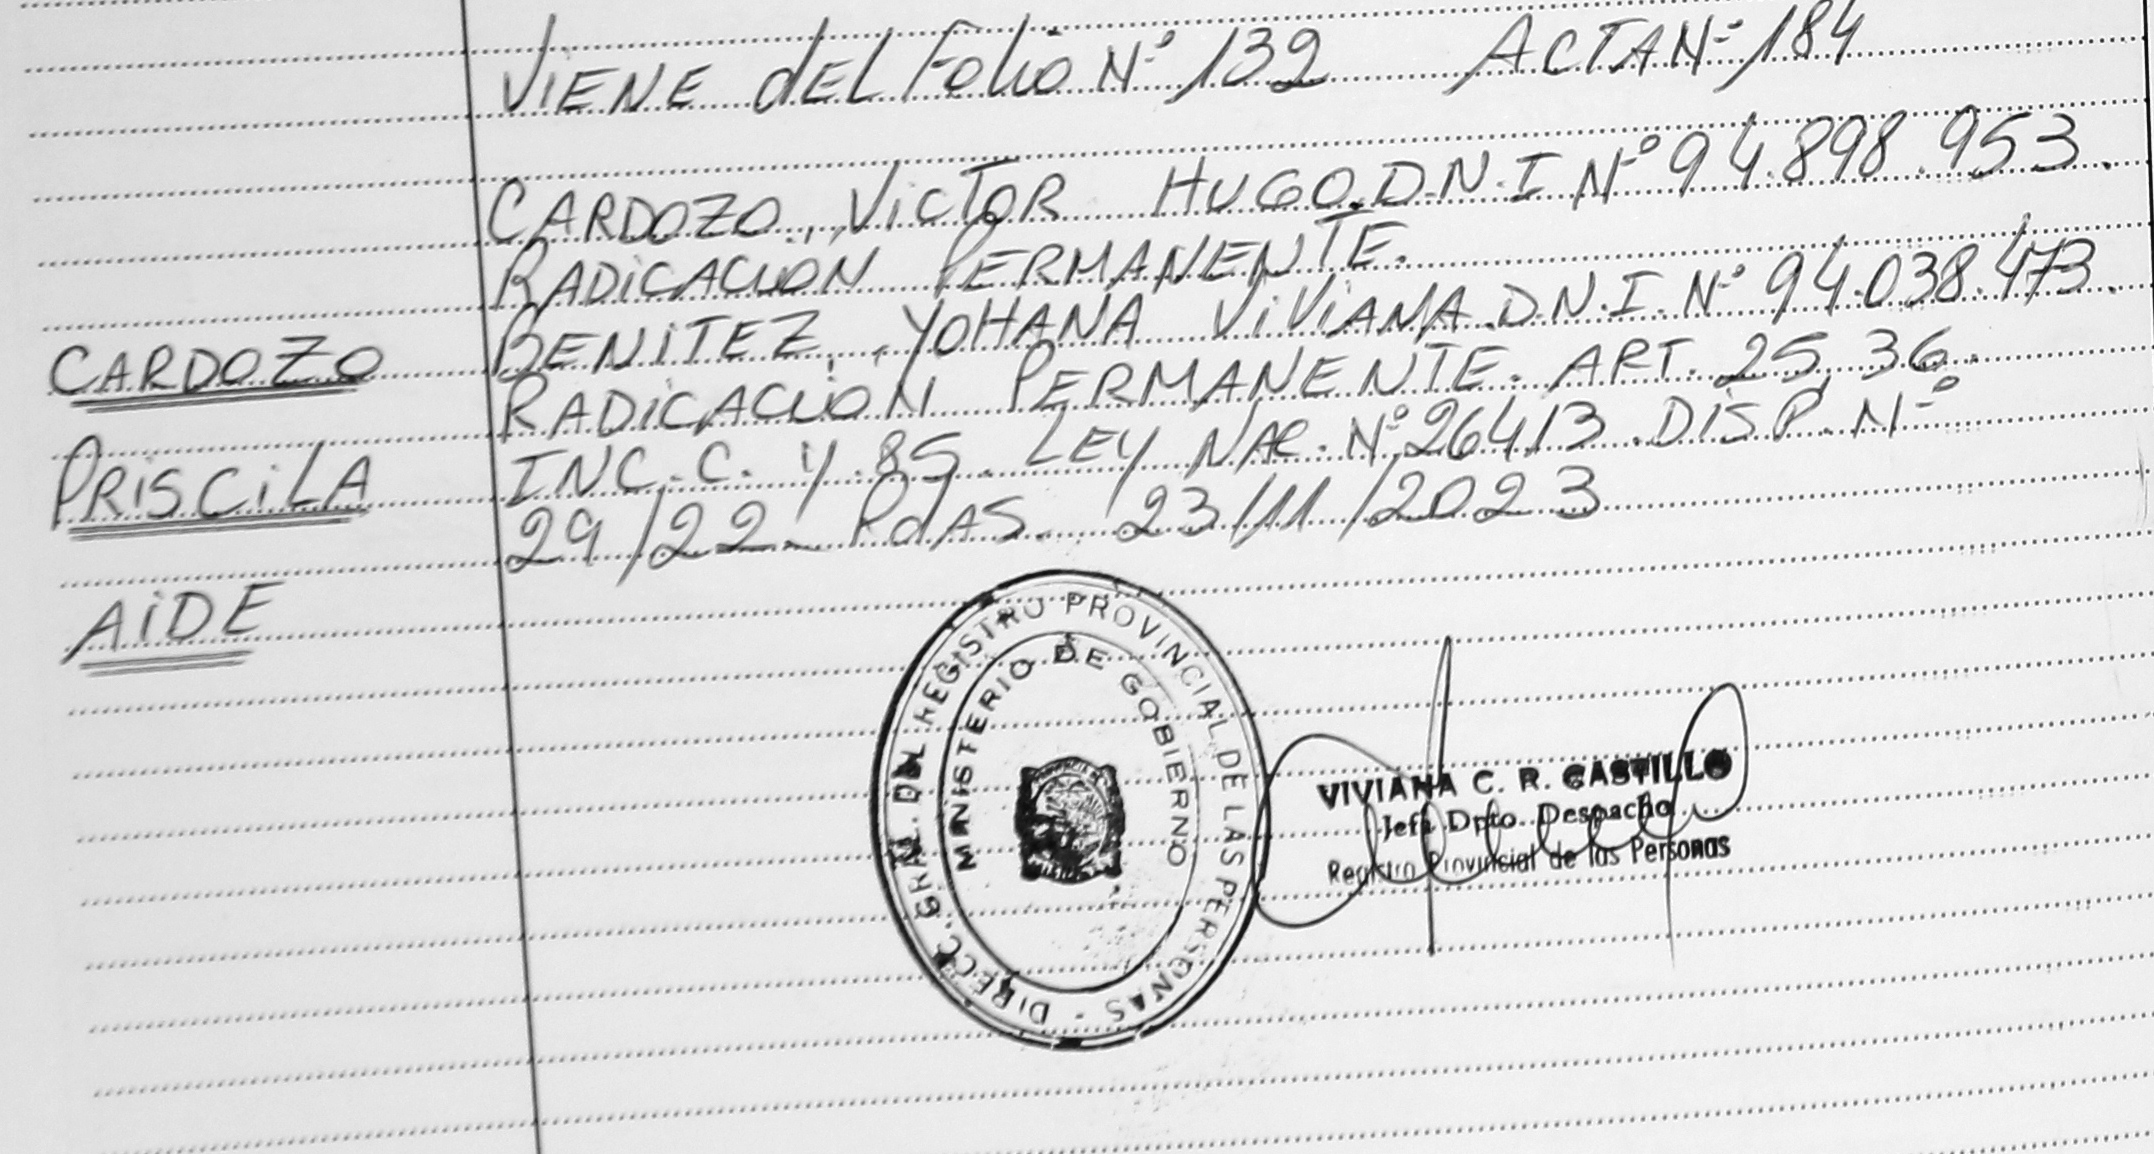 VIENE dEL Folio Nº 132 ACTA Nº 184
CARDOZO, VICTOR HUGO.D.N.I Nº 94.898.953.
RADICACION PERMANENTE.
BENITEZ, YOHANA VIVIANA.D.N.I. Nº 94.038.473.
RADICACION PERMANENTE. ART. 25, 36.
INC. C. Y 85. LEY NAC. Nº 26413. DISP. Nº
29/22 PdAS. 23/11/2023
CARDOZO
PRISCILA
AIDE
DIREC. GRAL. DEL REGISTRO PROVINCIAL DE LAS PERSONAS -
MINISTERIO DE GOBIERNO
VIVIANA C. R. CASTILLO
Jefa Dpto. Despacho
Registro Provincial de las Personas